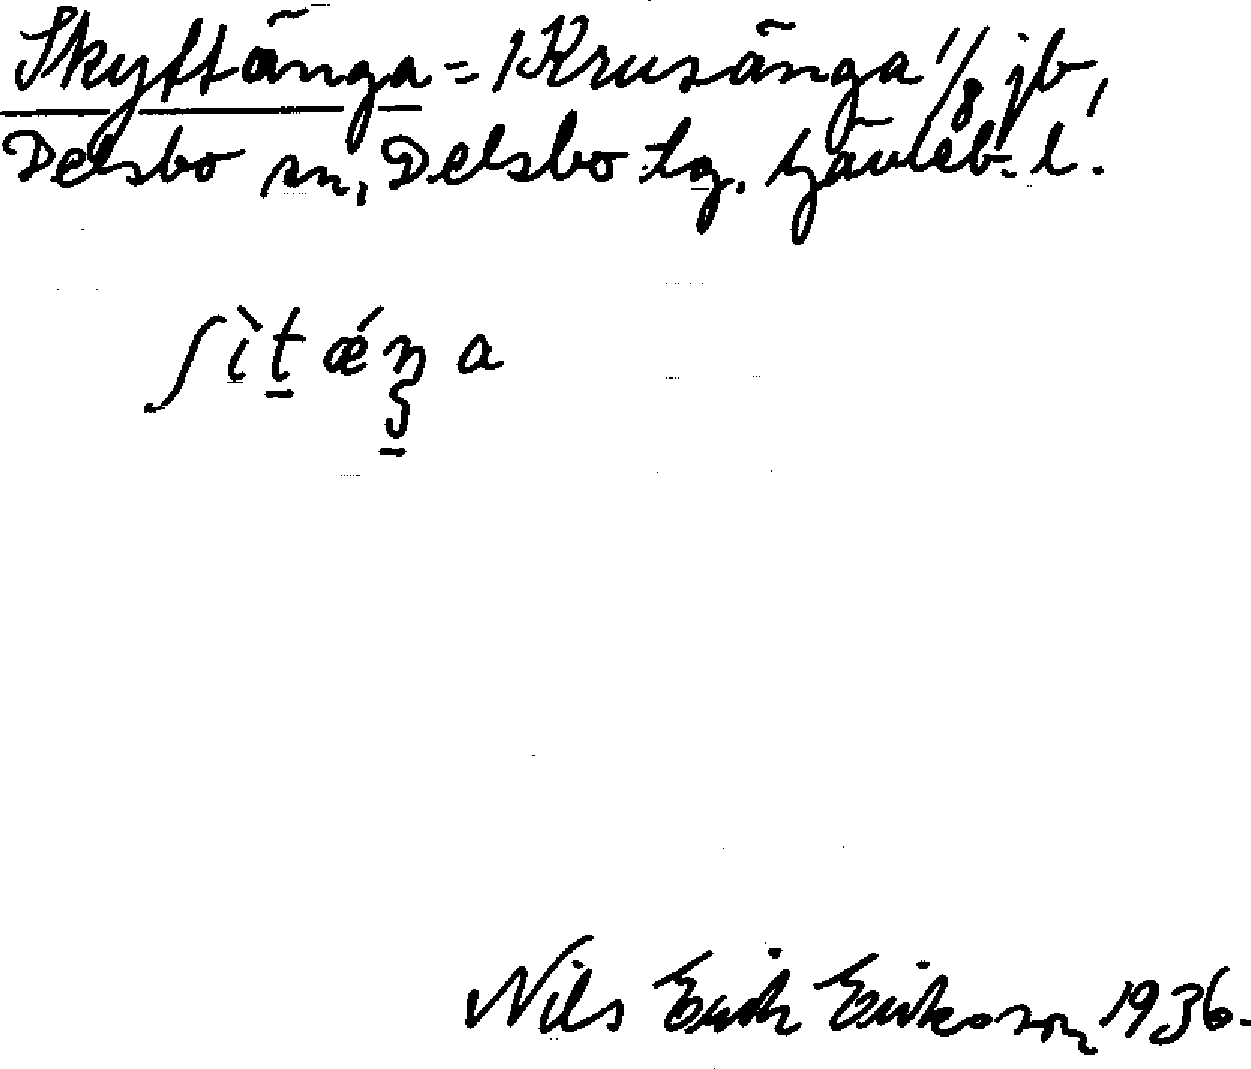 Skyftänga = /Krusänga 1/8 jb,
Delsbo sn, Delsbo tg. Gävleb. l.
ʃìtǽŋa
Nils Erik Eriksson 1936.